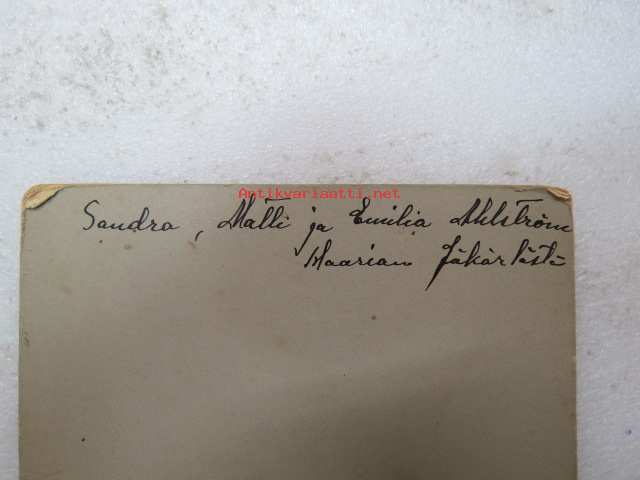 Antikvariaatti.net
Sandra, Matti ja Emilia Ahlström
Maarian Jäkärlästä